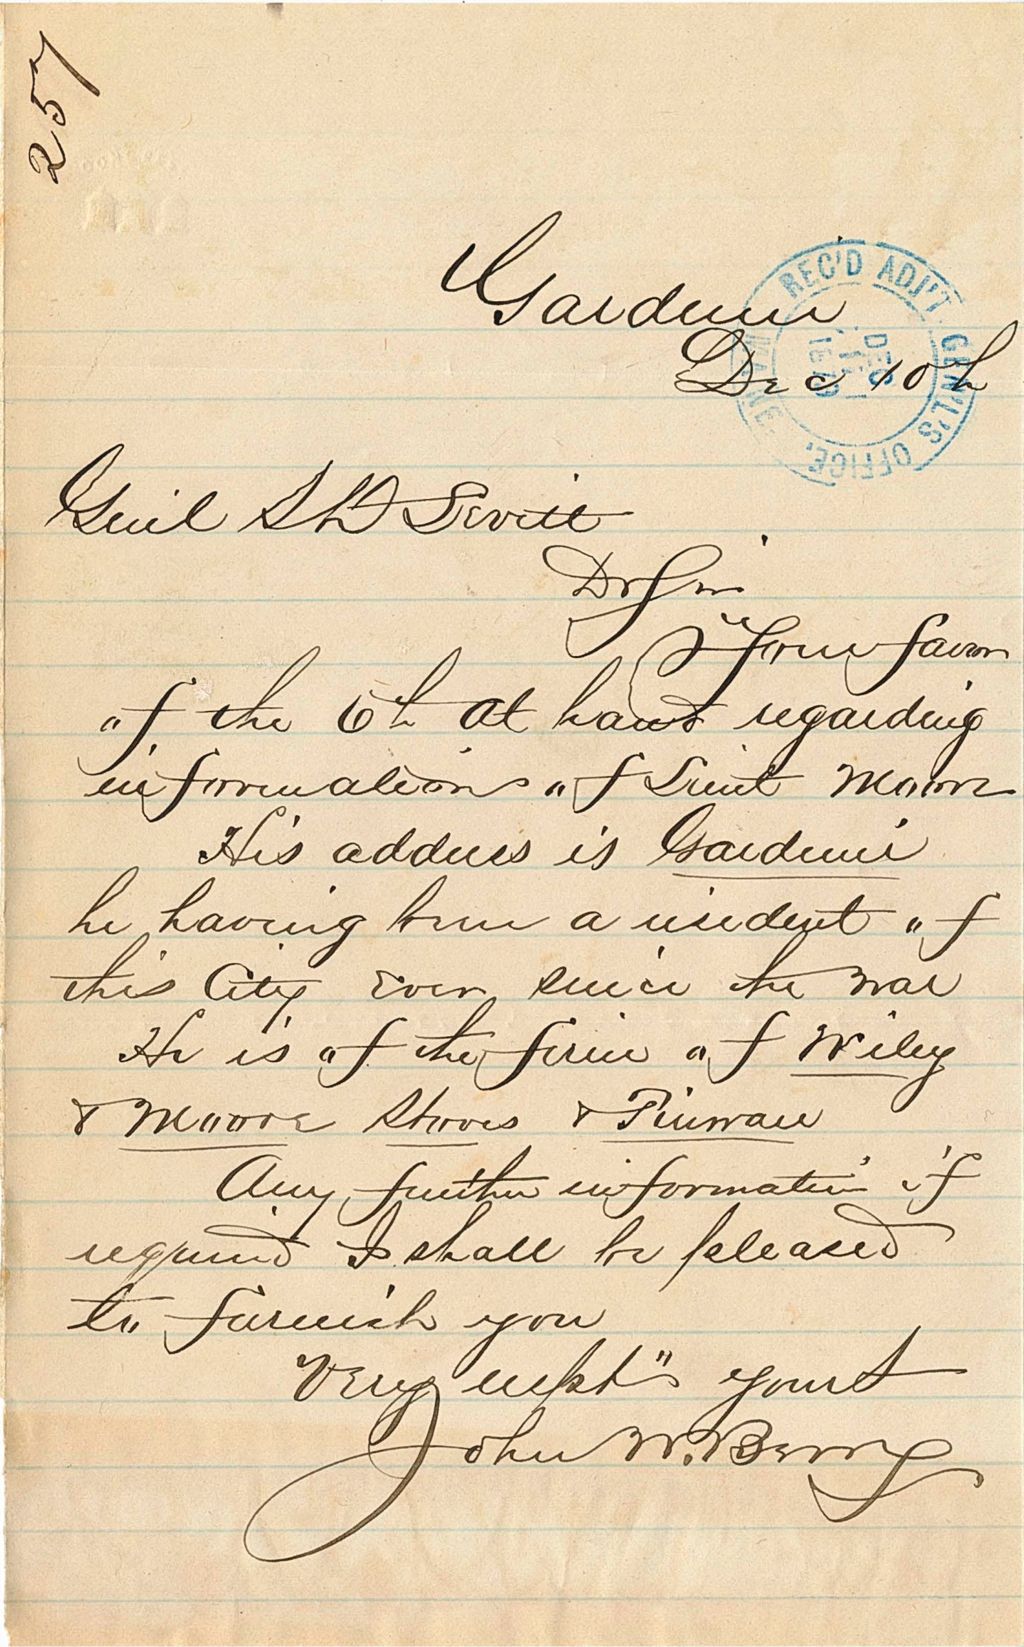 257
Gardiner
Dec 10th
REC'D ADJ'T GEN'L'S OFFICE,
DEC
Genl S D Levitt
Dr Sir
Your favor
of the 6th at hand regarding
information of Lieut Moore
His address is Gardiner
he having been a resident of
this City Ever since the war
He is of the firm of Wiley
& Moore Stoves & Tinware
Any further information if
required I shall be pleased
to furnish you
Very respt" yours
John W. Berry